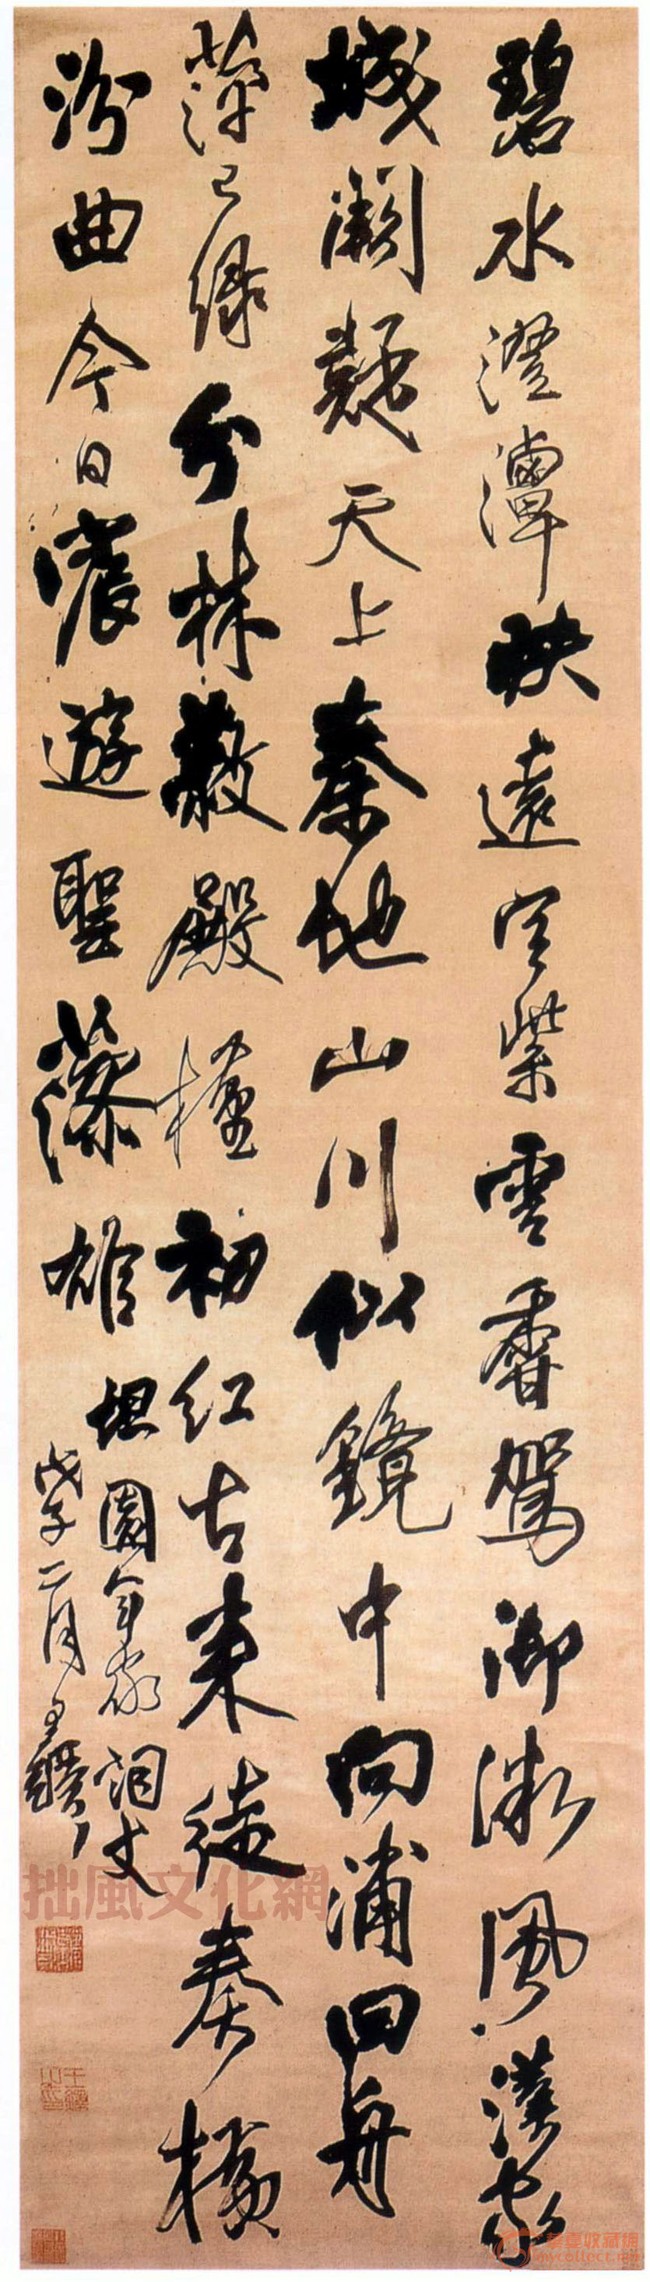 碧水澄潭映遠空紫雲香駕御微風漢家
城闕疑天上秦地山川似鏡中向浦回舟
萍已綠分林蔽殿槿初紅古来徒奏橫
汾曲今日宸遊聖藻雄
坦園年家詞丈
戊子二月王鐸
拙風文化網